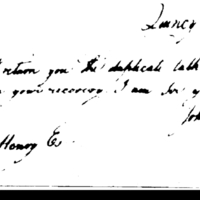 Quincy
return you the duplicate
your recovery I am
Joh
Henry E